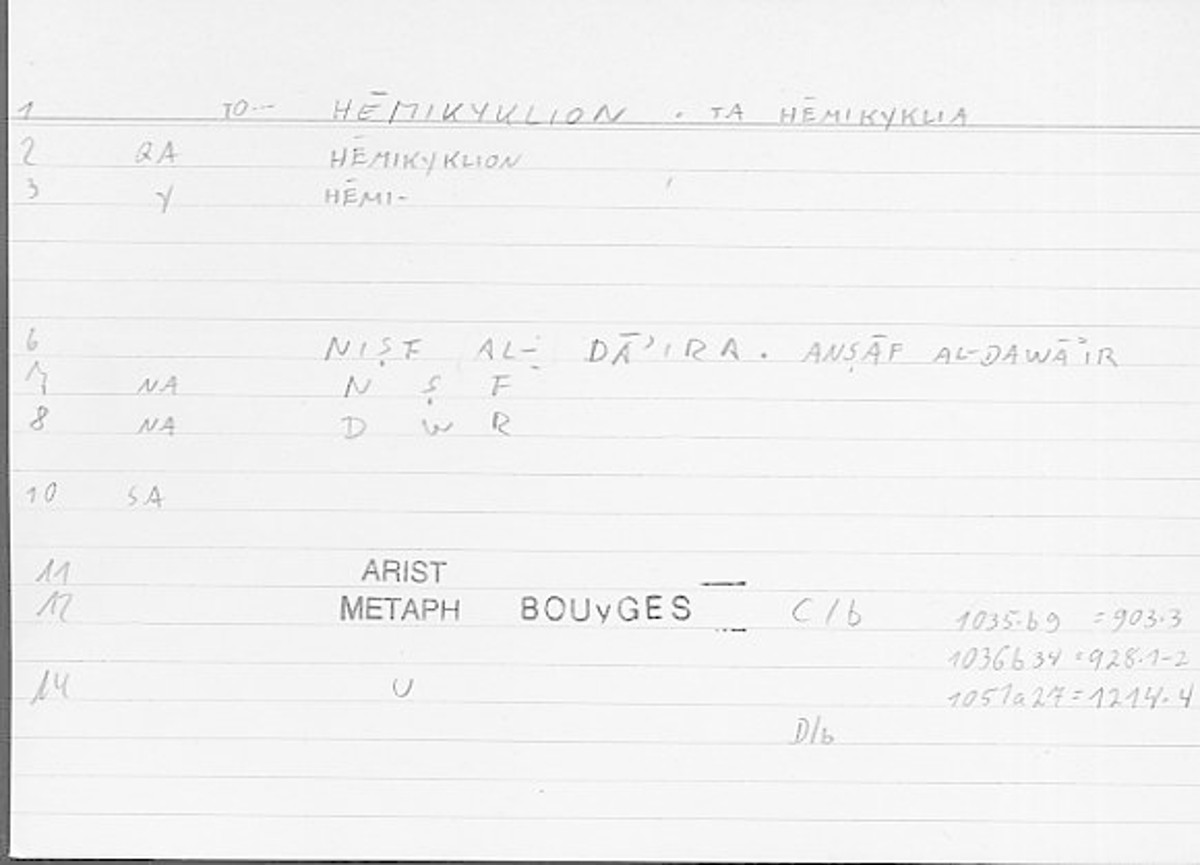 1 TO-- HĒMIKYKLION . TA HĒMIKYKLIA
2 QA HĒMIKYKLION
3 Y HĒMI-
6 NIṢF AL- DĀ'IRA . ANṢĀF AL-DAWĀ'IR
7 NA N Ṣ F
8 NA D W R
10 SA
11 ARIST
12 METAPH BOUYGES C/b 1035.b9 = 903.3
1036b34 = 928.1-2
14 U 1051a27 = 1214.4
D/b